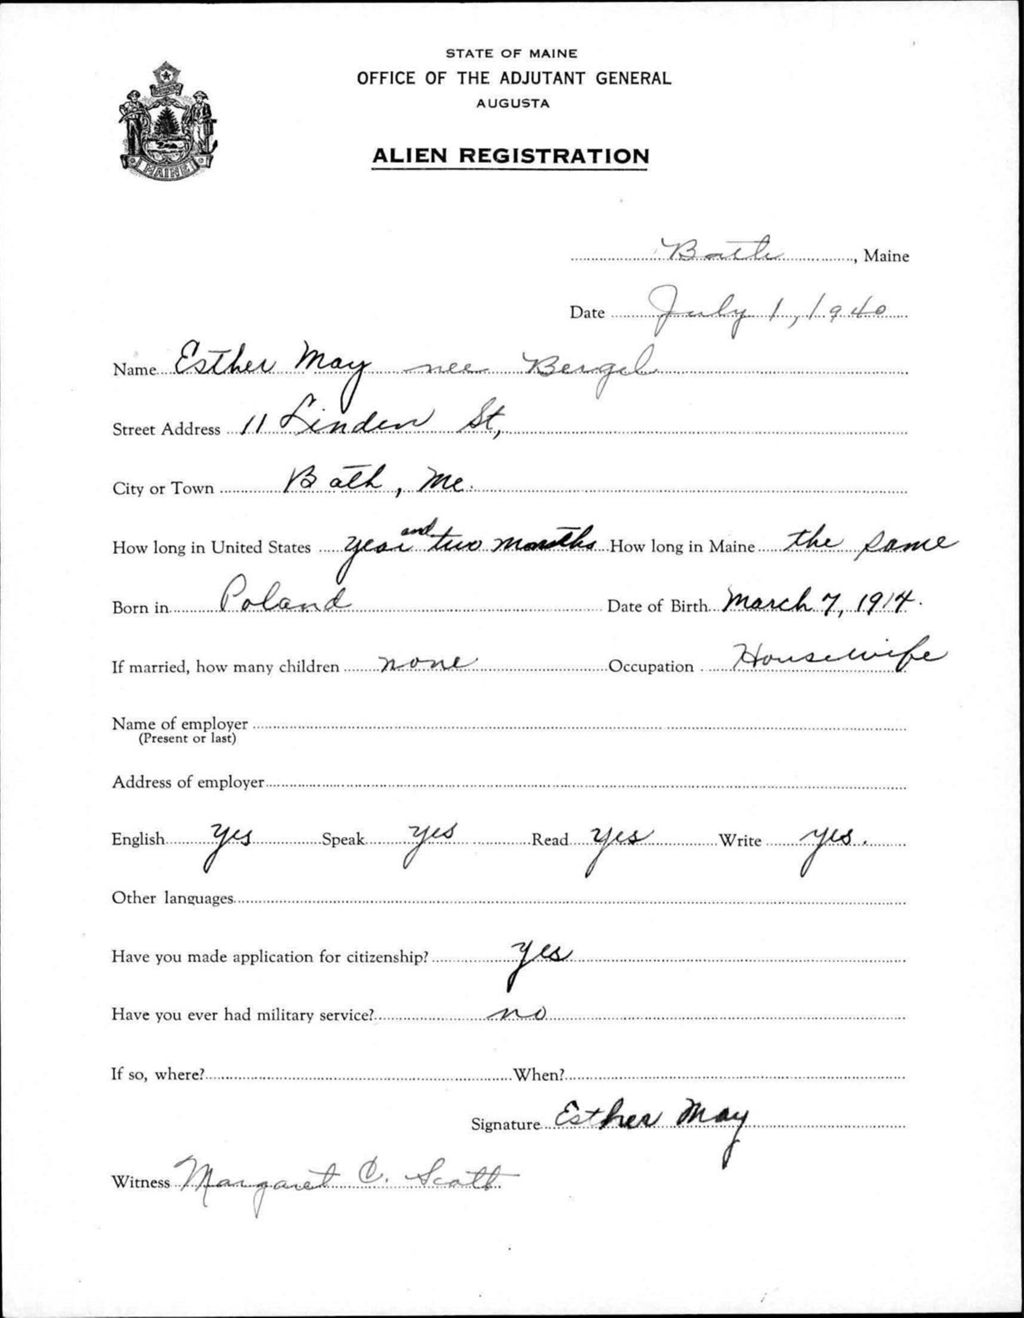 STATE OF MAINE
OFFICE OF THE ADJUTANT GENERAL
AUGUSTA
ALIEN REGISTRATION
MAINE
Bath, Maine
Date July 1, 1940
Name Esther May nee Bergel
Street Address 11 Linden St,
City or Town Bath, Me.
How long in United States year and two months How long in Maine the same
Born in Poland Date of Birth March 7, 1914.
If married, how many children none Occupation Housewife
Name of employer
(Present or last)
Address of employer
English yes Speak yes Read yes Write yes.
Other languages
Have you made application for citizenship? yes
Have you ever had military service? no
If so, where? When?
Signature Esther May
Witness Margaret C. Scott